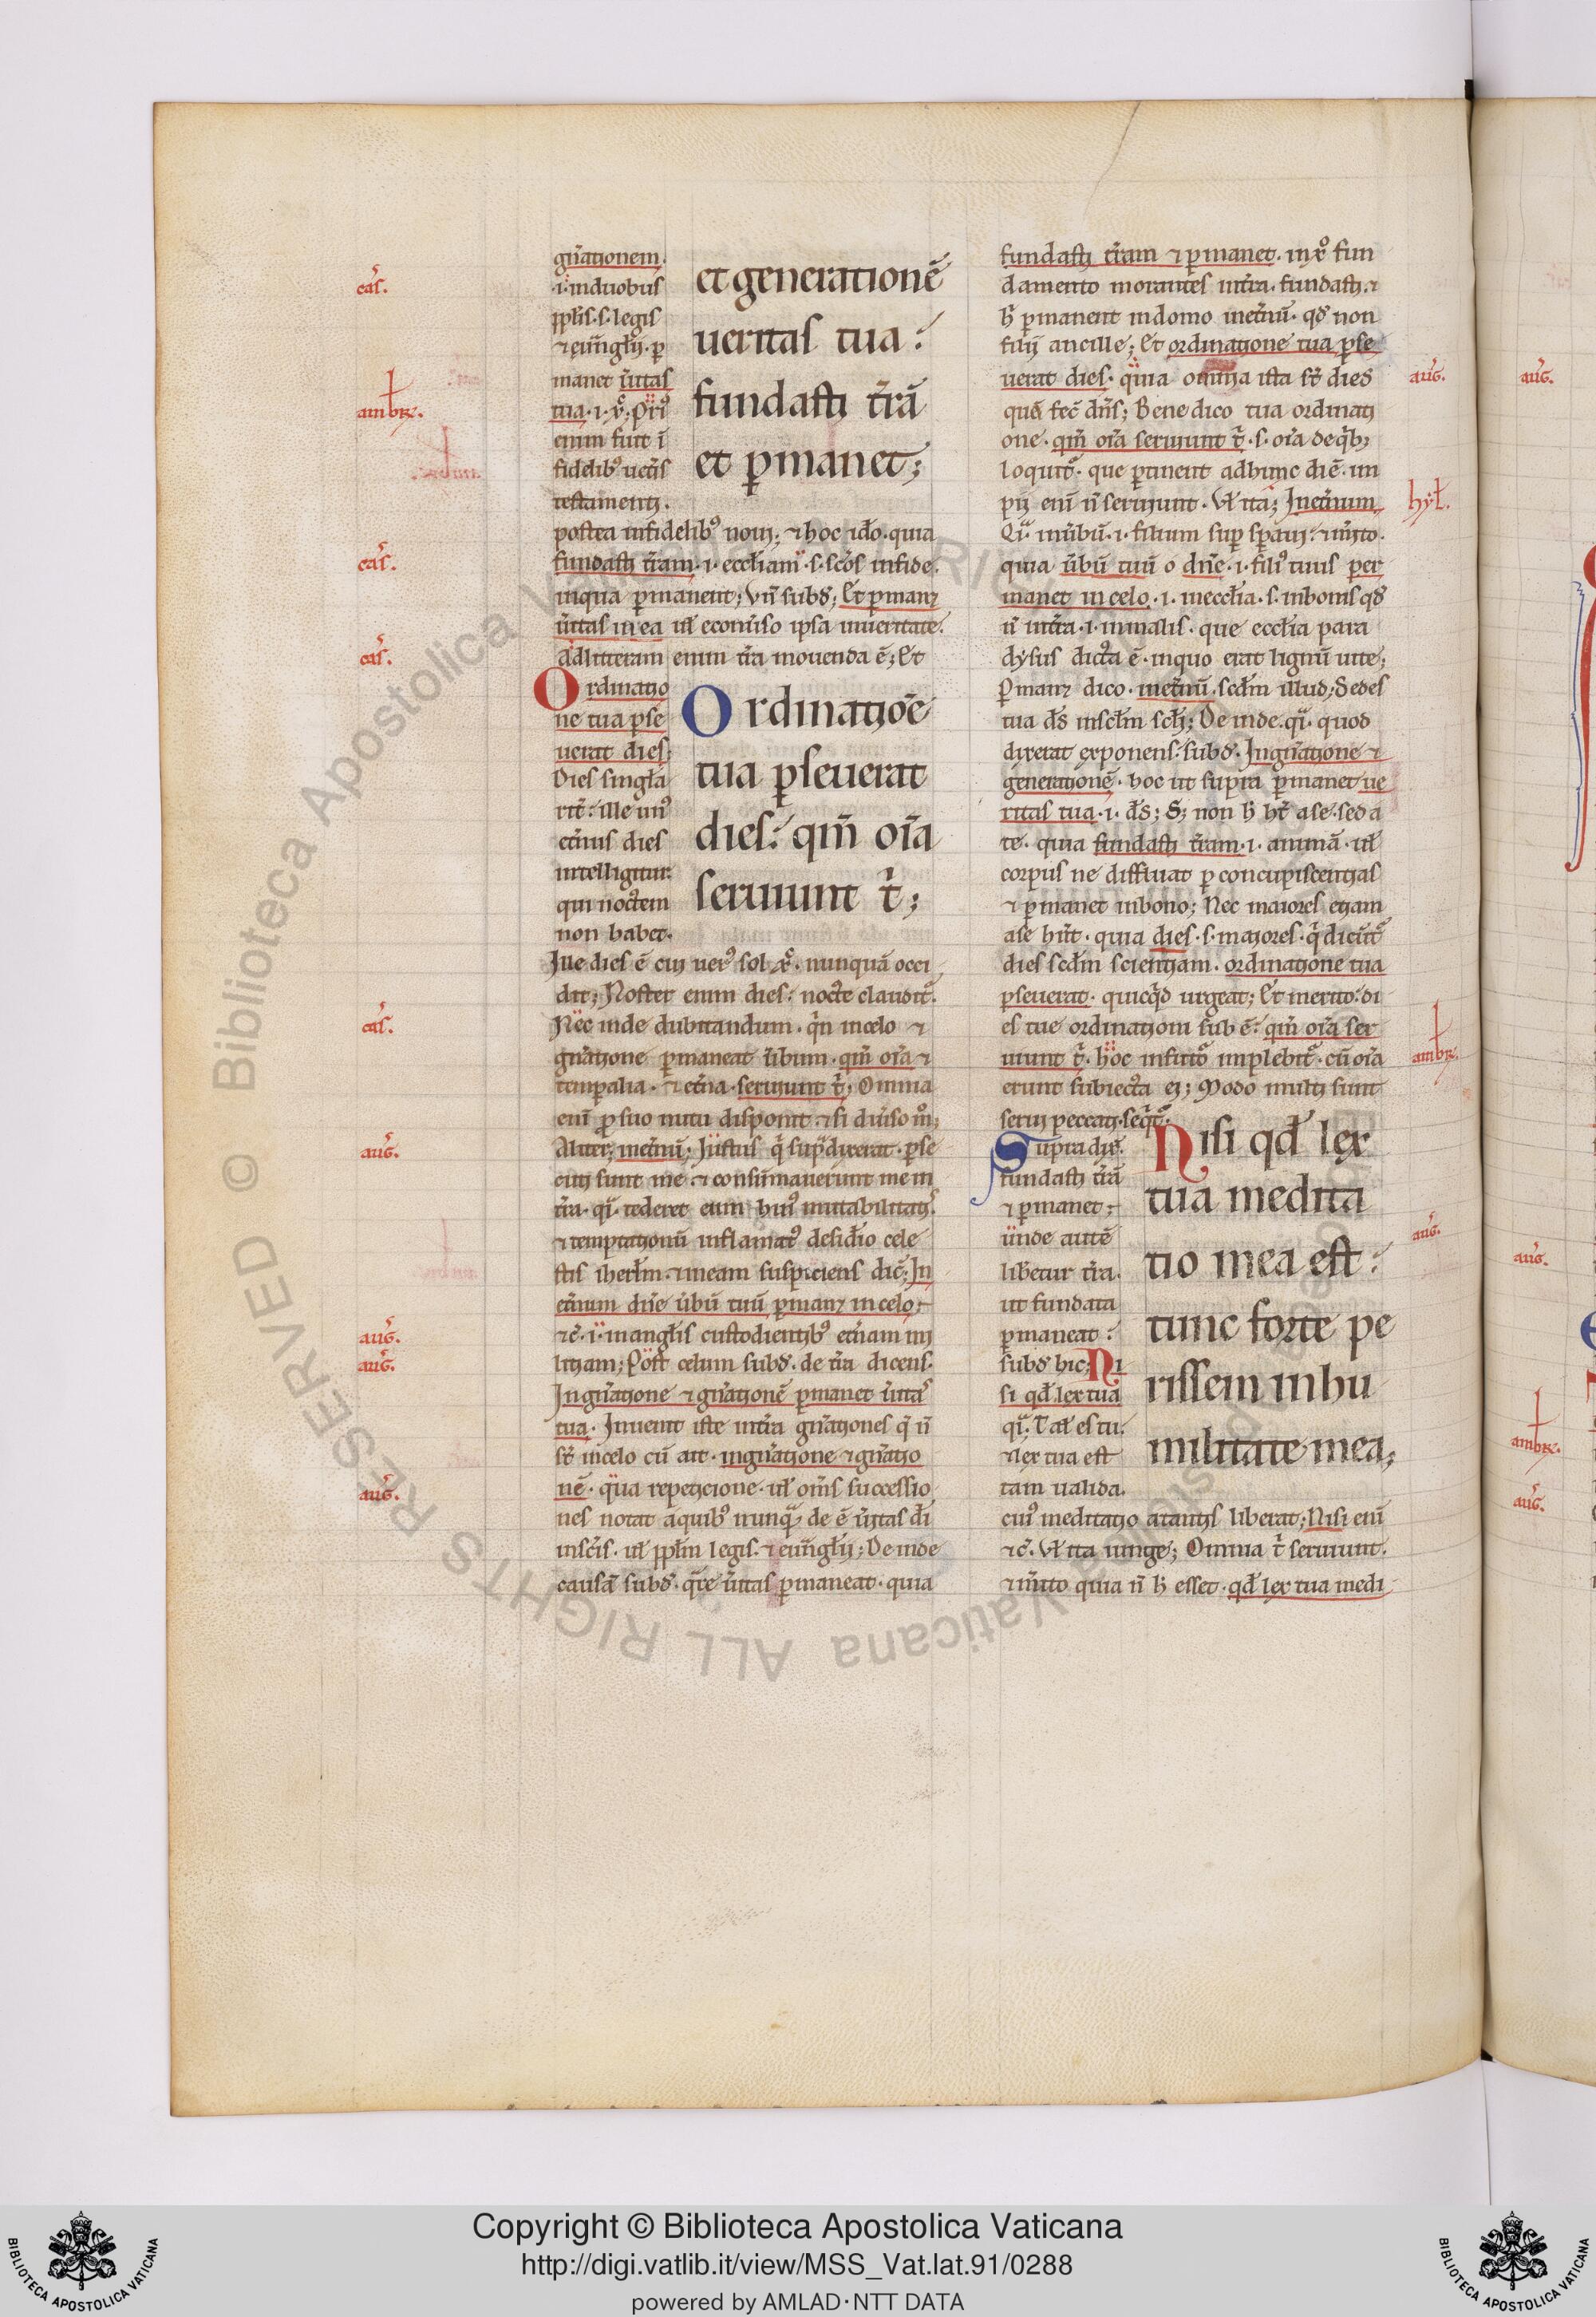 gn̄ationem.
.i. in duobus
pplīs .s. legis
⁊ euḡlij. p
manet u̅itas
tua .i. xp̄c; Pri᷒
enim fuit ī
fidelib᷒ uet̄is
testamenti.
et generationē
ueritas tua:
fundasti t̄rā
et p̱manet;
postea in fidelib᷒ noui; ⁊ hoc id̄o. quia
fundasti t̄ram .i. eccl̄iam .s. sc̄os in fide.
in qua p̱manent; Vn̄ subd̄; Et p̱manꝫ
u̅itas in ea ul̄ econuiso ipsa in ueritate.
Ad litteram enim t̄ra mouenda ē; Et
Ordinatio
ne tua p̱se
uerat dies.
Dies singla
rit̄: ille un᷒
et̄nus dies
intelligitur.
qui noctem
non habet.
Ordinatiōe
tua p̱seuerat
dies: qm̄ oīa
seruiunt t̄;
Iue dies ē cui uer᷒ sol xp̄c. nunquā occi
dit; Noster enim dies: nocte claudit᷑.
Nec inde dubitandum. qn̄ in celo ⁊
gn̄atione p̱maneat u̅bum. qm̄ oīa ⁊
temp̱alia. ⁊ et̄na. seruiunt t̄; Omnia
enī p̱ suo nutu disponit. ⁊ si diuiso m̊;
Aliter; inet̄nū; Iustus q̄ sup̄ dixerat. p̱se
cuti sunt me. ⁊ consūmauerunt me in
t̄ra. q̄i. tederet eum hui᷒ mutabilitatis
⁊ temptationū inflamat᷒ desid̄io cele
stis ih̄erl̄m. ⁊ in eam suspiciens dic̄; In
et̄num dn̄e u̅bū tuū p̱manꝫ in celo;
⁊c̄. i. in angl̄is custodientib᷒ et̄nam mi
litiam; Post celum subd̄. de t̄ra dicens.
In gn̄atione ⁊ gn̄ationē p̱manet u̅itas
tua. Inuenit iste in t̄ra gn̄ationes q̄ n̄
st̄ in celo cū ait. in gn̄atione ⁊ gn̄atio
nē. quia repeticione. ul̄ om̄s successio
nes notat a quib᷒ nunq̄ de ē u̅itas dī
in sc̄is. ul̄ pplm̄ legis. ⁊ euḡlij; De inde
causā subd̄. q̄re u̅itas p̱maneat. quia
fundasti t̄ram ⁊ p̱manet. in xp̄o fun
damento morantes in t̄ra. fundasti. ⁊
h̄ p̱manent in domo inet̄nū. qd̄ non
filij ancille; Et ordinatione tua p̱se
uerat dies. quia omnia ista st̄ dies
quā fec̄ dn̄s; Bene dico tua ordinati
one. qm̄ oīa seruiunt t̄. s. oīa de qb᷒
loquit᷑. que p̱tinent ad hunc diē. im
pij enī n̄ seruiunt. Vl̄ ita; In et̄num
Qi. in u̅bū .i. filium sup̱ sp̱aui. ⁊ m̄ito.
quia u̅bū tuū o dn̄e .i. fili᷒ tuus per
manet in celo .i. in eccl̄ia .s. in bonis qd̄
n̄ in t̄ra .i. in malis. que eccl̄ia para
dysus dicta ē. in quo erat lignū uite;
P̱manꝫ dico. inet̄nū. scd̄m illud; Sedes
tua d̄s in scl̄m scl̄i; De inde. q̄i. quod
dixerat exponens. subd̄. In gn̄atione ⁊
generationē. hoc ut supra p̱manet ue
ritas tua .i. d̄s; S; non h̄ ht̄ a se. sed a
te. quia fundasti t̄ram .i. animā. ul̄
corpus ne diffluat p̱ concupiscentias
⁊ p̱manet in bono; Nec maiores etiam
a se hn̄t. quia dies .s. maiores. q̄ dicūt᷑
dies scd̄m scientiam. ordinatione tua
p̱seuerat. quicq̄d urgeat; Et merito: di
es tue ordinationi sub ē: qm̄ oīa ser
uiunt t̄. hoc in futo implebit᷑. cū oīa
erunt subiecta ei; Modo multi sunt
serui peccati. seq̄t᷑.
Supra dix̄.
fundasti t̄rā
⁊ p̱manet:
unde autē
liberetur t̄ra.
ut fundata
p̱maneat:
subd̄ hic; Ni
si qd̄ lex tua
q̄i. Tal̄ es tu.
⁊ lex tua est
tam ualida.
Nisi qd̄ lex
tua medita
tio mea est:
tunc forte pe
rissem in hu
militate mea;
cui᷒ meditatio a tantis liberat; Nisi enī
⁊c̄. Vl̄ ita iunge; Omnia t̄ seruiunt.
⁊ m̄ito quia n̄ h̄ esset. qd̄ lex tua medi
cas̄.
ambr̄.
cas̄.
cas̄.
cas̄.
auḡ.
auḡ.
auḡ.
auḡ.
auḡ.
hyl̄.
ambr̄.
auḡ.
auḡ.
auḡ.
ambr̄.
auḡ.
© Biblioteca Apostolica Vaticana ALL RIGHTS RESERVED
Copyright © Biblioteca Apostolica Vaticana
http://digi.vatlib.it/view/MSS_Vat.lat.91/0288
powered by AMLAD·NTT DATA
BIBLIOTECA APOSTOLICA VATICANA
BIBLIOTECA APOSTOLICA VATICANA